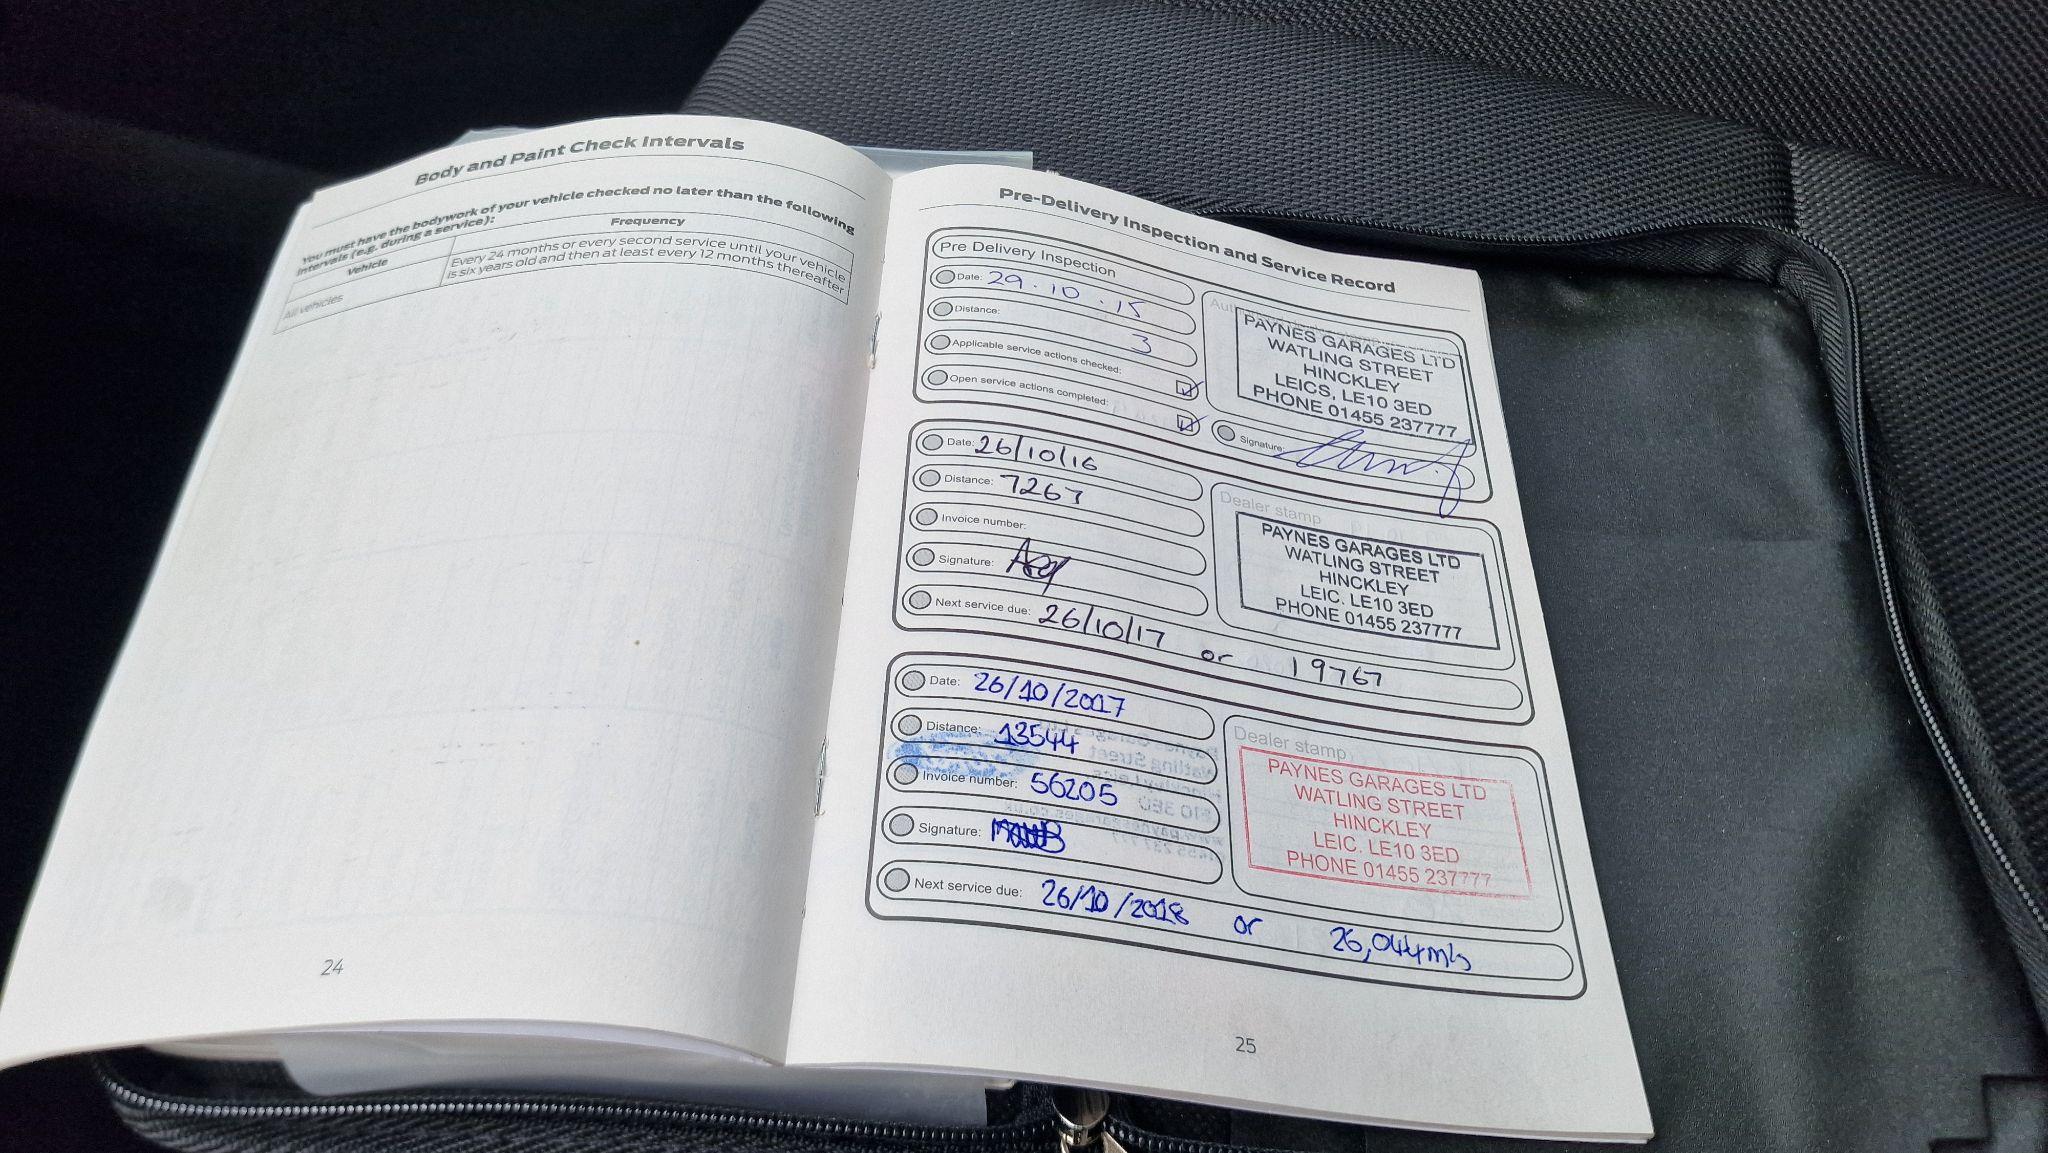 Body and Paint Check Intervals
You must have the bodywork of your vehicle checked no later than the following
intervals (e.g. during a service):
Vehicle
Frequency
All vehicles
Every 24 months or every second service until your vehicle
is six years old and then at least every 12 months thereafter
24
Pre-Delivery Inspection and Service Record
Pre Delivery Inspection
Date: 29.10.15
Distance: 3
Applicable service actions checked:
Open service actions completed:
PAYNES GARAGES LTD
WATLING STREET
HINCKLEY
LEICS, LE10 3ED
PHONE 01455 237777
Signature:
Date: 26/10/16
Distance: 7267
Invoice number:
Signature:
Next service due: 26/10/17 or 19767
Dealer stamp
PAYNES GARAGES LTD
WATLING STREET
HINCKLEY
LEIC. LE10 3ED
PHONE 01455 237777
Date: 26/10/2017
Distance: 13544
Invoice number: 56205
Signature:
Next service due: 26/10/2018 or 26,044mls
Dealer stamp
PAYNES GARAGES LTD
WATLING STREET
HINCKLEY
LEIC. LE10 3ED
PHONE 01455 237777
25